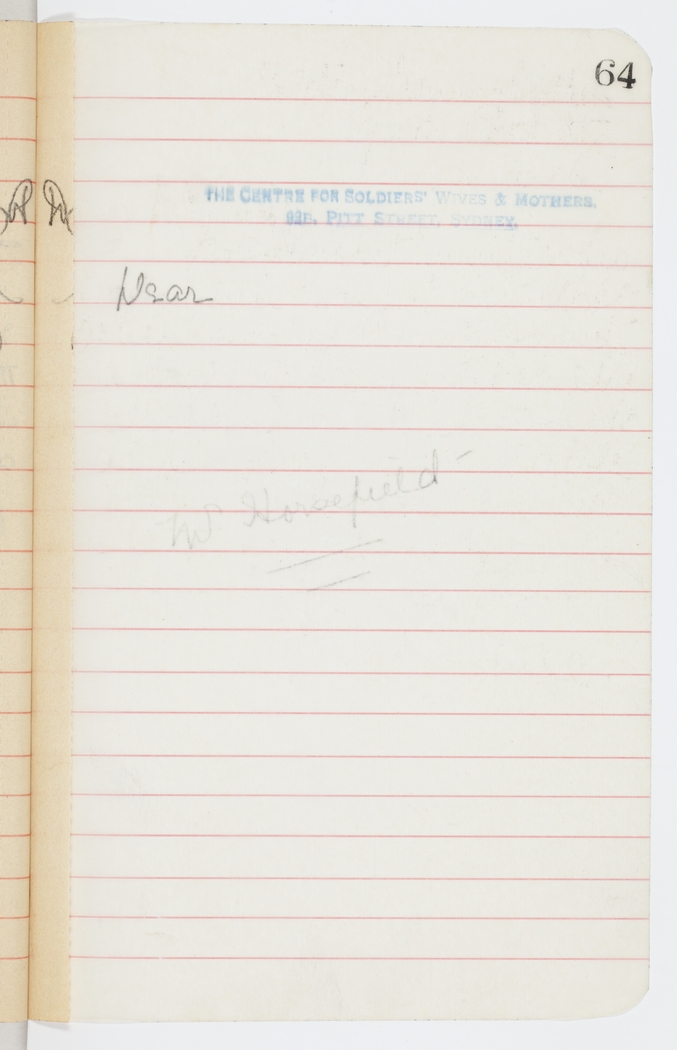 64
THE CENTRE FOR SOLDIERS' WIVES & MOTHERS.
92B, PITT STREET, SYDNEY.
Dear
Mr Horsefield -